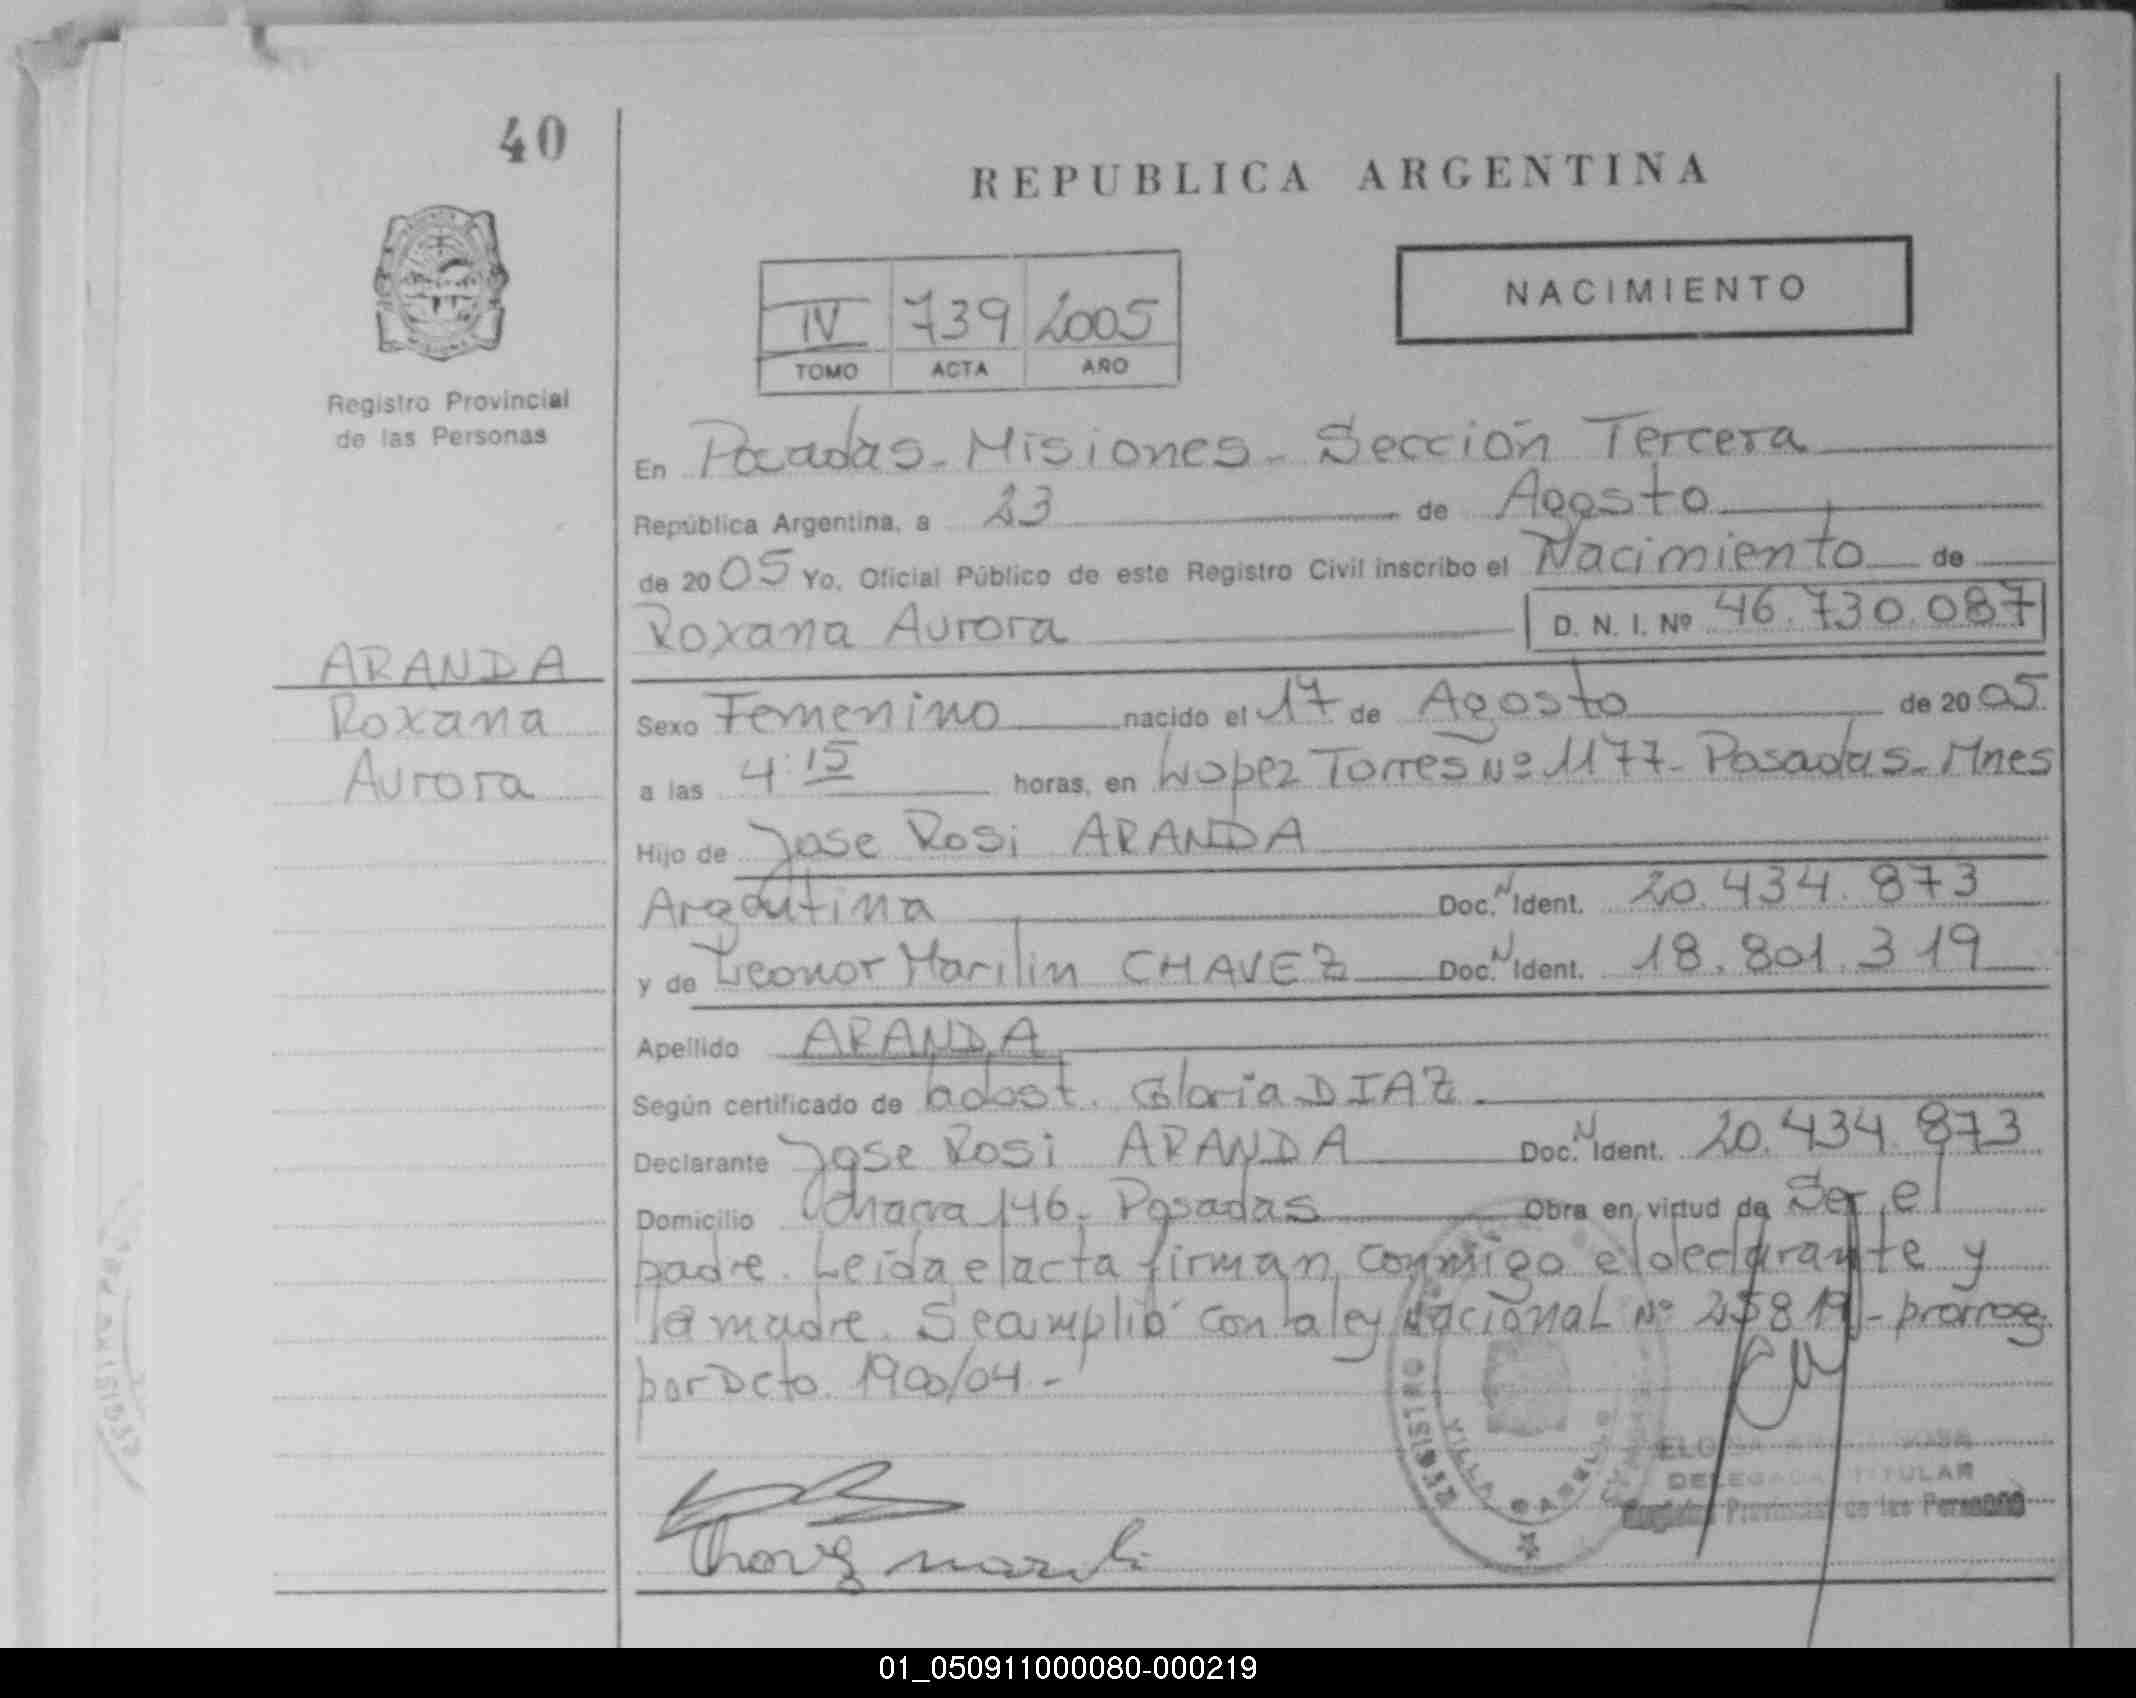 40
REPUBLICA ARGENTINA
NACIMIENTO
IV 739 2005
TOMO ACTA AÑO
Registro Provincial
de las Personas
En Posadas - Misiones - Sección Tercera
República Argentina, a 23 de Agosto
de 2005 Yo, Oficial Público de este Registro Civil inscribo el Nacimiento de
Roxana Aurora D. N. I. Nº 46.730.087
ARANDA
Roxana
Aurora
Sexo Femenino nacido el 17 de Agosto de 2005
a las 4:15 horas, en Lopez Torres Nº 1177 - Posadas - Mnes
Hijo de Jose Rosi ARANDA
Argentina Doc. N Ident. 20.434.873
y de Leonor Marilin CHAVEZ Doc. N Ident. 18.801.319
Apellido ARANDA
Según certificado de obst. Gloria DIAZ.
Declarante Jose Rosi ARANDA Doc. N Ident. 20.434.873
Domicilio Chacra 146 - Posadas Obra en virtud de Ser el
padre. Leída el acta firman conmigo el declarante y
la madre. Se amplió con la ley Nacional Nº 25819 - prorrog.
por Dcto. 1900/04 -
REGISTRO
VILLA CABELLO
DELEGADA TITULAR
Registro Provincial de las Personas
Chavez Marili
01_050911000080-000219